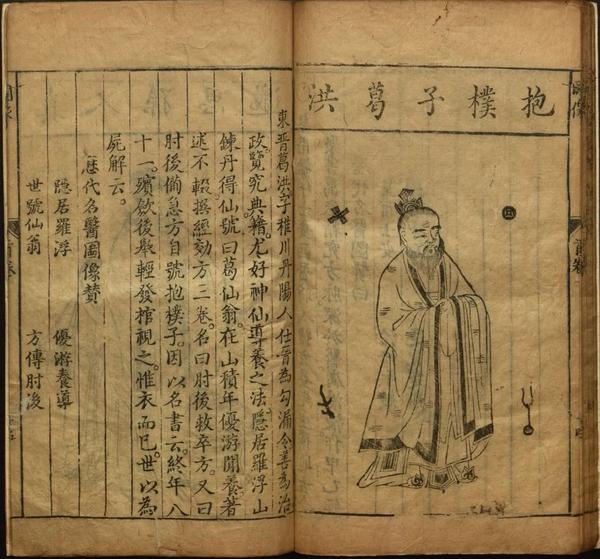 抱樸子葛洪
東晉葛洪字稚川丹陽人仕晉為勾漏令善為治
政覽究典籍尤好神仙導養之法隱居羅浮山
鍊丹得仙號曰葛仙翁在山積年優游閒養著
述不輟撰經効方三卷名曰肘後救卒方又曰
肘後俻急方自號抱樸子因以名書云終年八
十一殯歛後舉輕發棺視之惟衣而已世以為
屍解云。
歷代名醫圖像贊
隱居羅浮 優游養導
世號仙翁 方傳肘後
首卷